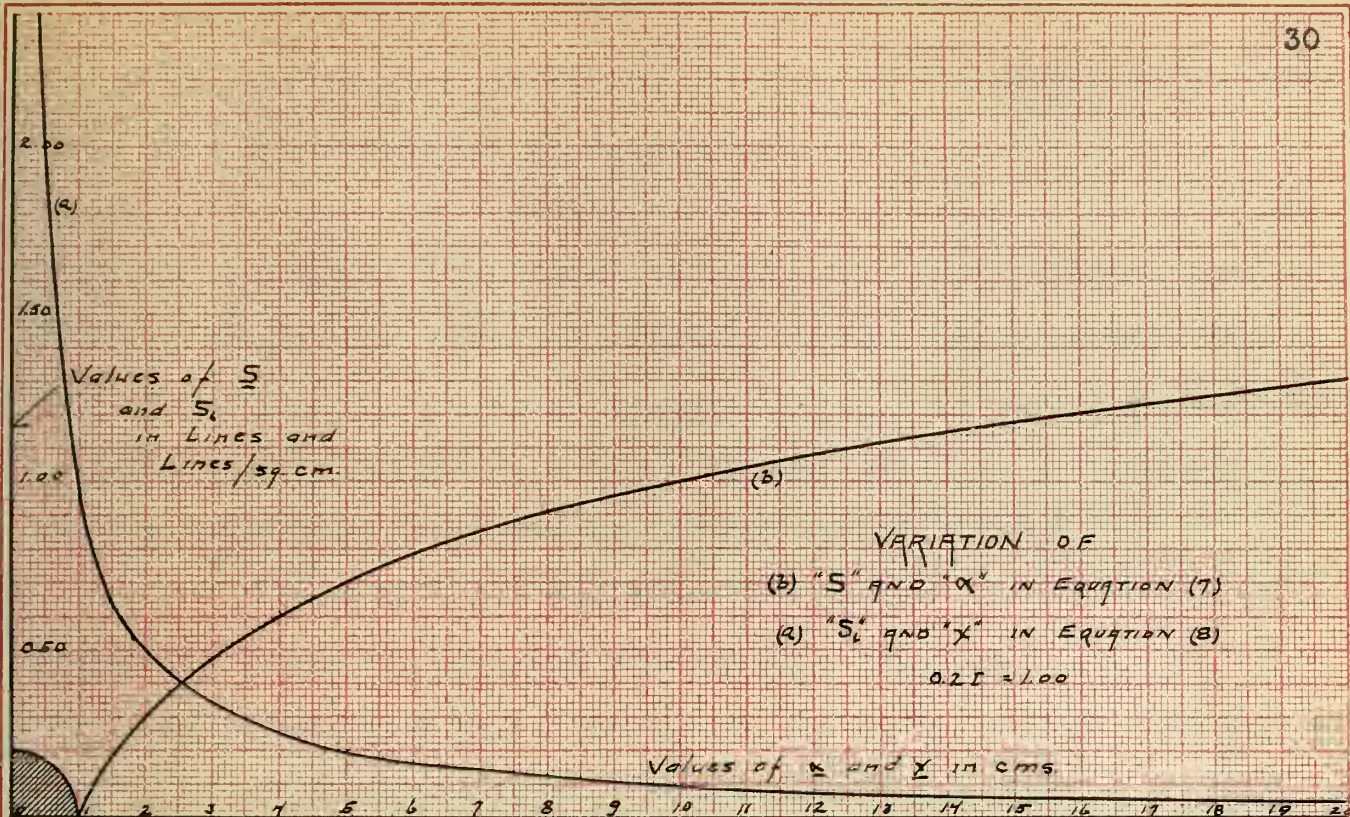 30
2.00
(a)
1.50
Values of S
and S₁
in Lines and
Lines/sq. cm.
1.00
(b)
VARIATION OF
(b) "S" AND "α" IN EQUATION (7)
(a) "S₁" AND "X" IN EQUATION (8)
0.50
0.2I = 1.00
Values of α and x in cms.
0 1 2 3 4 5 6 7 8 9 10 11 12 13 14 15 16 17 18 19 20